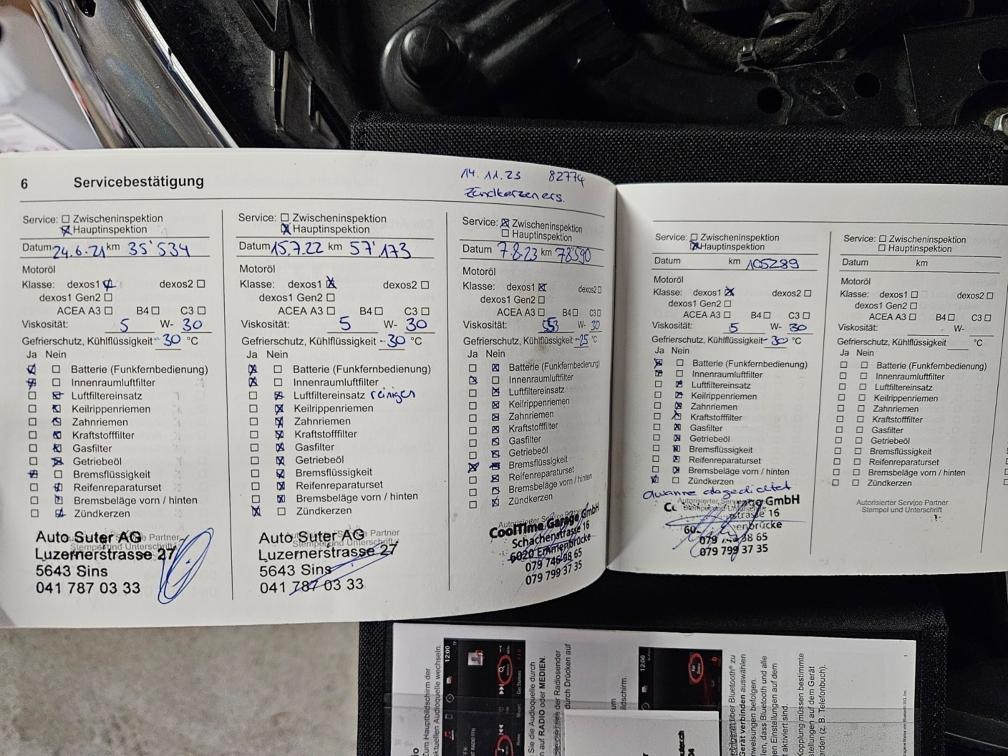 6 Servicebestätigung
14.11.23 82774
Zündkerzen ers.
Service: Zwischeninspektion
Hauptinspektion
Datum 24.6.21 km 35'534
Motoröl
Klasse: dexos1 dexos2
dexos1 Gen2
ACEA A3 B4 C3
Viskosität: 5 W- 30
Gefrierschutz, Kühlflüssigkeit -30 °C
Ja Nein
Batterie (Funkfernbedienung)
Innenraumluftfilter
Luftfiltereinsatz
Keilrippenriemen
Zahnriemen
Kraftstofffilter
Gasfilter
Getriebeöl
Bremsflüssigkeit
Reifenreparaturset
Bremsbeläge vorn / hinten
Zündkerzen
Auto Suter AG
Luzernerstrasse 27
5643 Sins
041 787 03 33
Service: Zwischeninspektion
Hauptinspektion
Datum 15.7.22 km 57'173
Motoröl
Klasse: dexos1 dexos2
dexos1 Gen2
ACEA A3 B4 C3
Viskosität: 5 W- 30
Gefrierschutz, Kühlflüssigkeit -30 °C
Ja Nein
Batterie (Funkfernbedienung)
Innenraumluftfilter
Luftfiltereinsatz reinigen
Keilrippenriemen
Zahnriemen
Kraftstofffilter
Gasfilter
Getriebeöl
Bremsflüssigkeit
Reifenreparaturset
Bremsbeläge vorn / hinten
Zündkerzen
Auto Suter AG
Luzernerstrasse 27
5643 Sins
041 787 03 33
Service: Zwischeninspektion
Hauptinspektion
Datum 7.8.23 km 78590
Motoröl
Klasse: dexos1 dexos2
dexos1 Gen2
ACEA A3 B4 C3
Viskosität: W- 30
Gefrierschutz, Kühlflüssigkeit -25 °C
Ja Nein
Batterie (Funkfernbedienung)
Innenraumluftfilter
Luftfiltereinsatz
Keilrippenriemen
Zahnriemen
Kraftstofffilter
Gasfilter
Getriebeöl
Bremsflüssigkeit
Reifenreparaturset
Bremsbeläge vorn / hinten
Zündkerzen
CoolTime Garage GmbH
Schachenstrasse 16
6020 Emmenbrücke
079 746 98 65
079 799 37 35
Service: Zwischeninspektion
Hauptinspektion
Datum km 105289
Motoröl
Klasse: dexos1 dexos2
dexos1 Gen2
ACEA A3 B4 C3
Viskosität: 5 W- 30
Gefrierschutz, Kühlflüssigkeit -30 °C
Ja Nein
Batterie (Funkfernbedienung)
Innenraumluftfilter
Luftfiltereinsatz
Keilrippenriemen
Zahnriemen
Kraftstofffilter
Gasfilter
Getriebeöl
Bremsflüssigkeit
Reifenreparaturset
Bremsbeläge vorn / hinten
Zündkerzen
GmbH
16
079 799 37 35
Service: Zwischeninspektion
Hauptinspektion
Datum km
Motoröl
Klasse: dexos1 dexos2
dexos1 Gen2
ACEA A3 B4 C3
Viskosität: W-
Gefrierschutz, Kühlflüssigkeit °C
Ja Nein
Batterie (Funkfernbedienung)
Innenraumluftfilter
Luftfiltereinsatz
Keilrippenriemen
Zahnriemen
Kraftstofffilter
Gasfilter
Getriebeöl
Bremsflüssigkeit
Reifenreparaturset
Bremsbeläge vorn / hinten
Zündkerzen
Autorisierter Service Partner
Stempel und Unterschrift